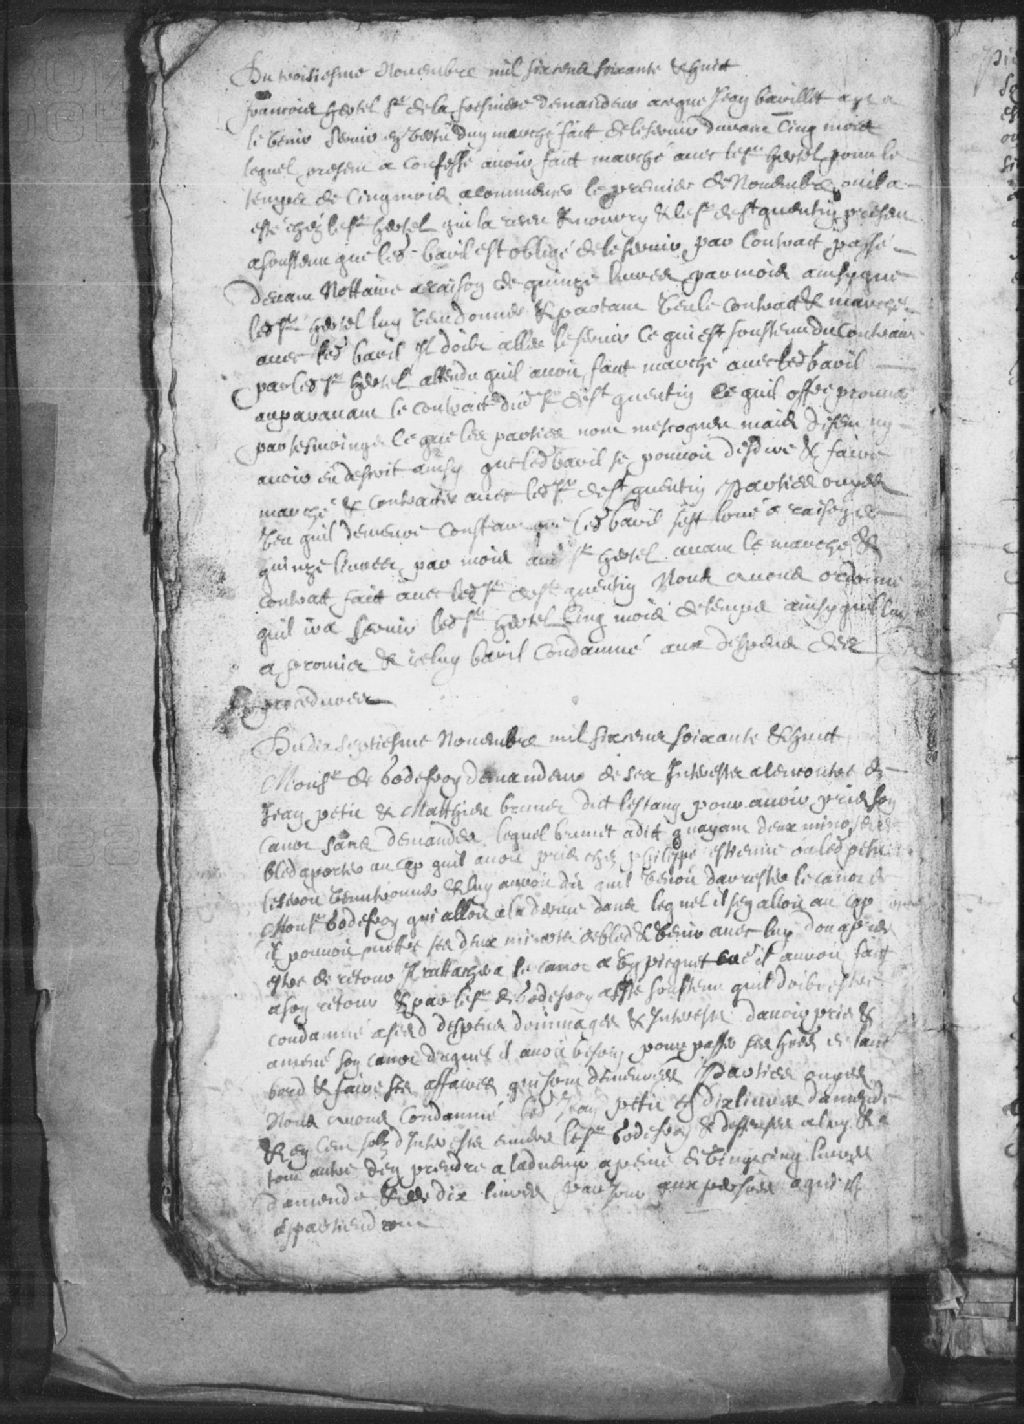 Du troisiesme Novembre mil six cent soixante & huit
francois hertel sr de la fresniere demandeur a ce que Jean bavillet aye a
le venir servir en vertu d'un marché fait de le servir durant Cinq mois
lequel present a confessé avoir fait marché avec le sr hertel pour le
temps de cinq mois a commencer le premier de Novembre ouil a
esté chez le sr hertel qui la receu & nourry & le sr de st quentin present
a soustenu que led bavil est obligé de le servir par Contract passé
devant Nottaire a raison de quinze livres par mois ainsy que
led sr hertel luy
avec led bavil Il doibt aller le servir Ce qui est soustenu du Contraire
par led sr hertel attendu quil avoit fait marché avec led bavil
auparavant le contract dud sr de st quentin ce quil offre prouver
par tesmoings Ce que les parties nont mescogneu mais disent ny
avoir en descrit ainsy que led bavil se pouvoit desdire & faire
marché & contracter avec led sr de st quentin Parties ouyes
veu quil demeure constant que led bavil sest loué a raison de
quinze livres par mois aud sr hertel avant le marché &
contract fait avec led sr de st quentin Nous avons ordonné
quil ira servir led sr hertel Cinq mois de temps ainsy quil luy
a promis & iceluy bavil Condamné aux despens des
procedures
Du dix septiesme Novembre mil six cent soixante & huit
Monsr de Godefroy demandeur de ses Interestz alencontre de
Jean petit & Matthieu brunet dit lestang pour avoir pris son
canot sans demander lequel brunet a dit quayant deux minotz de
bled aporter au cap quil avoit pris chez philippe estienne ou led petit
lestoit & luy auroit dit quil venoit darrester le canot de
Monsr Godefroy qui alloit a la derive dans lequel il sen alloit au cap
il pouvoit mettre ses deux minotz de bled & venir avec luy dou apres
estre de retour Il rattachera le canot a un piequet ce quil auroit fait
a son retour & par le sr de Godefroy a esté soustenu quil doibt estre
condamné a ses despens dommages & Interestz davoir pris &
amené son canot duquel il avoit besoin pour passer ses gens de lautre
bord & faire ses affaires qui sont demeurées Parties ouyes
Nous avons Condamné led Jean petit en dix livres damende
& en cent solz dInterestz envers le sr Godefroy & deffenses a luy & a
tout autre den prendre a ladvenir a peine de vingt cinq livres
damende & de dix livres par jour aux personnes a qui il
apartiendront